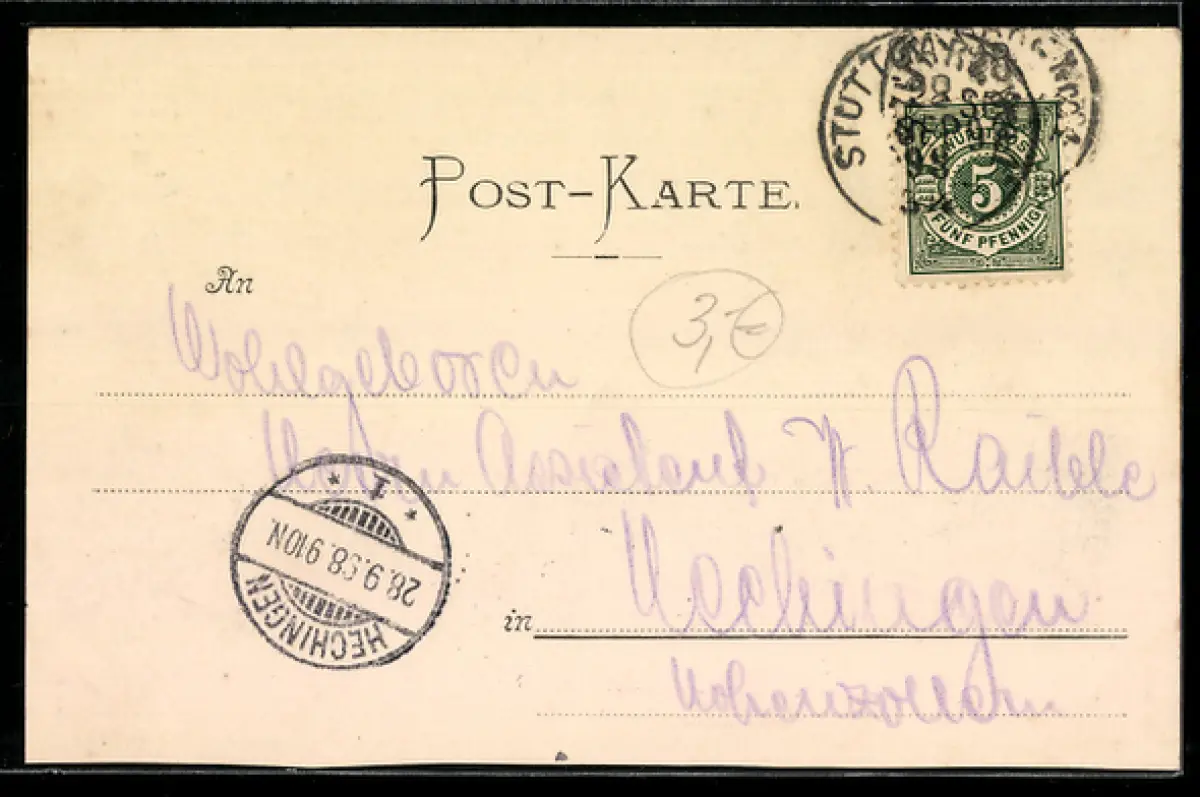 STUTTGART
POST-KARTE.
5
FÜNF PFENNIG
An
3,€
Wohlgeboren
Herrn Assistent W. Raible
in Hechingen
Hohenzollern
1
28.9.98. 9-10N.
HECHINGEN